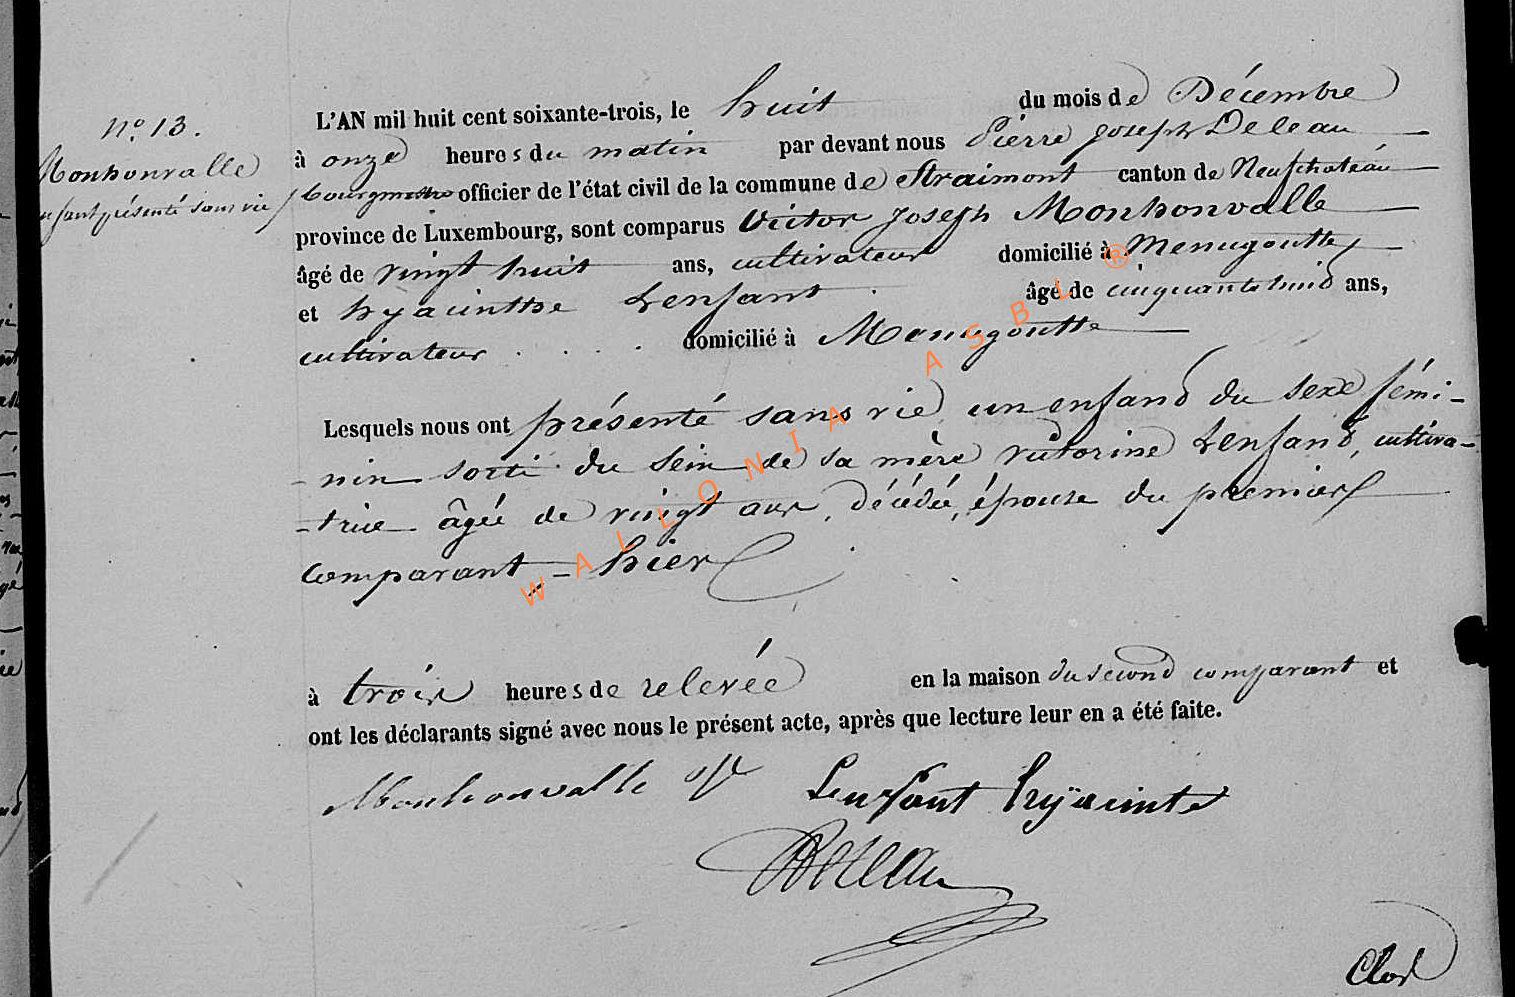 n° 13.
Monhonvalle
enfant présenté sans vie
L'AN mil huit cent soixante-trois, le huit du mois de Décembre
à onze heures du matin par devant nous Pierre Joseph Deleau
bourgmestre officier de l'état civil de la commune de Straimont canton de Neufchateau
province de Luxembourg, sont comparus Victor Joseph Monhonvalle
âgé de vingt huit ans, cultivateur domicilié à Menugoutte,
et hyacinthe Lenfant âgé de cinquante huit ans,
cultivateur . . . . domicilié à Menugoutte
Lesquels nous ont présenté sans vie un enfant du sexe fémi-
-nin sorti du sein de sa mère victorine Lenfant, cultiva-
-trice âgée de vingt ans, décédée, épouse du premier
comparant, - hier
à trois heures de relevée en la maison du second comparant et
ont les déclarants signé avec nous le présent acte, après que lecture leur en a été faite.
Monhonvalle Lenfant hyacinte
Deleau
Clos
WALLONIA ASBL ®